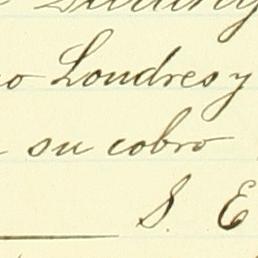 Londres y
su cobro
S. E